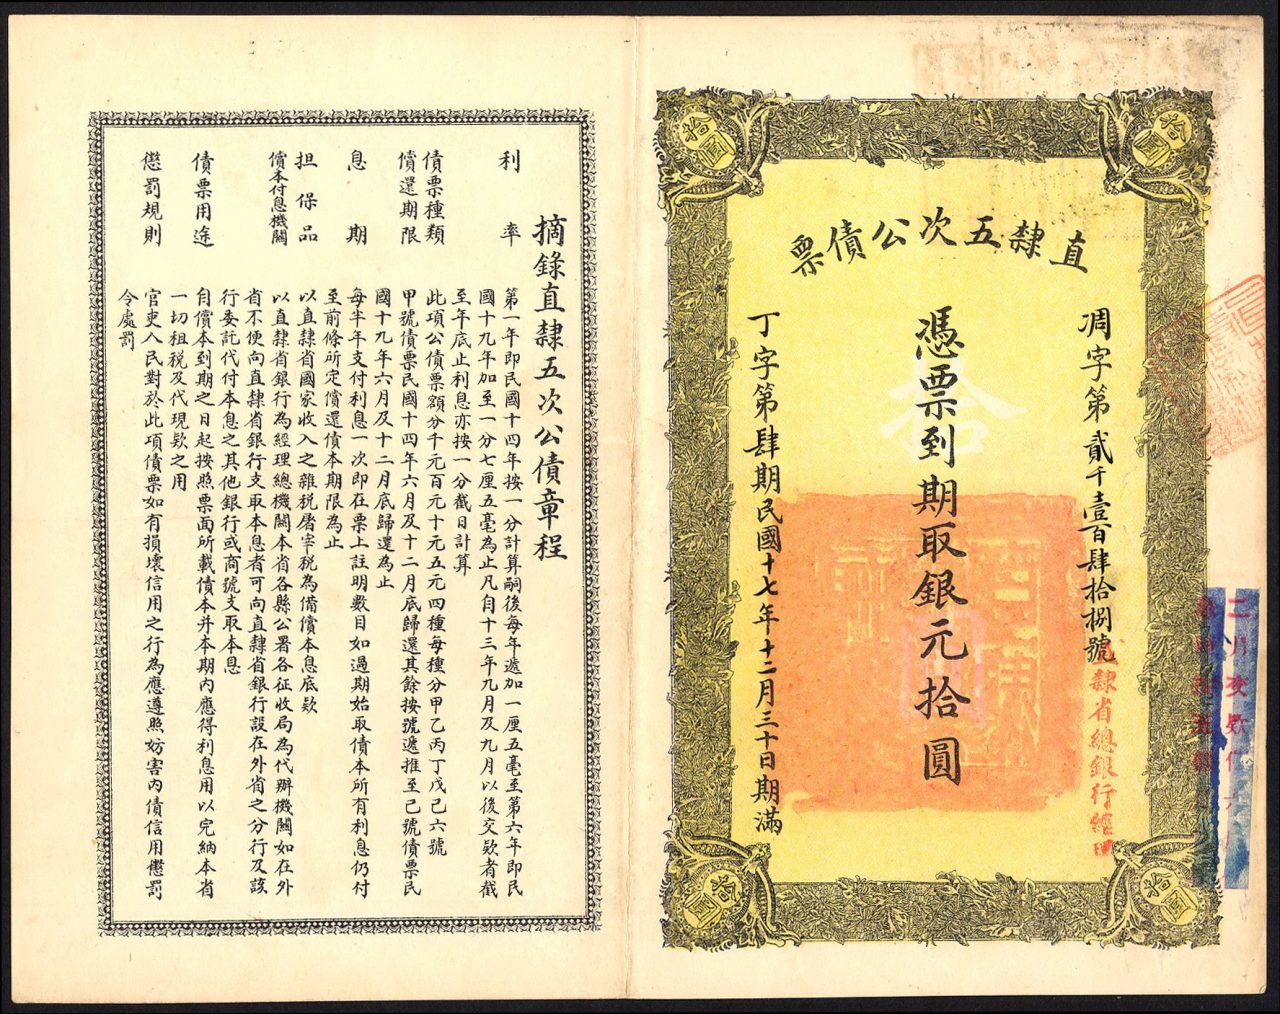 直隸五次公債票
凋字第貳千壹百肆拾捌號
憑票到期取銀元拾圓
丁字第肆期民國十七年十二月三十日期滿
拾圓
拾圓
拾圓
拾圓
隸省總銀行經
摘錄直隸五次公債章程
利率
第一年即民國十四年按一分計算嗣後每年遞加一厘五毫至第六年即民
國十九年加至一分七厘五毫為止凡自十三年九月及九月以後交欵者截
至年底止利息亦按一分截日計算
債票種類
此項公債票額分千元百元十元五元四種每種分甲乙丙丁戊己六號
償還期限
甲號債票民國十四年六月及十二月底歸還其餘按號遞推至己號債票民
國十九年六月及十二月底歸還為止
息期
每半年支付利息一次即在票上註明數目如過期始取債本所有利息仍付
至前條所定償還債本期限為止
担保品
以直隸省國家收入之雜稅屠宰稅為備償本息底欵
償本付息機關
以直隸省銀行為經理總機關本省各縣公署各征收局為代辦機關如在外
省不便向直隸省銀行支取本息者可向直隸省銀行設在外省之分行及該
行委託代付本息之其他銀行或商號支取本息
債票用途
自償本到期之日起按照票面所載債本并本期內應得利息用以完納本省
一切租稅及代現欵之用
懲罰規則
官吏人民對於此項債票如有損壞信用之行為應遵照妨害內債信用懲罰
令處罰